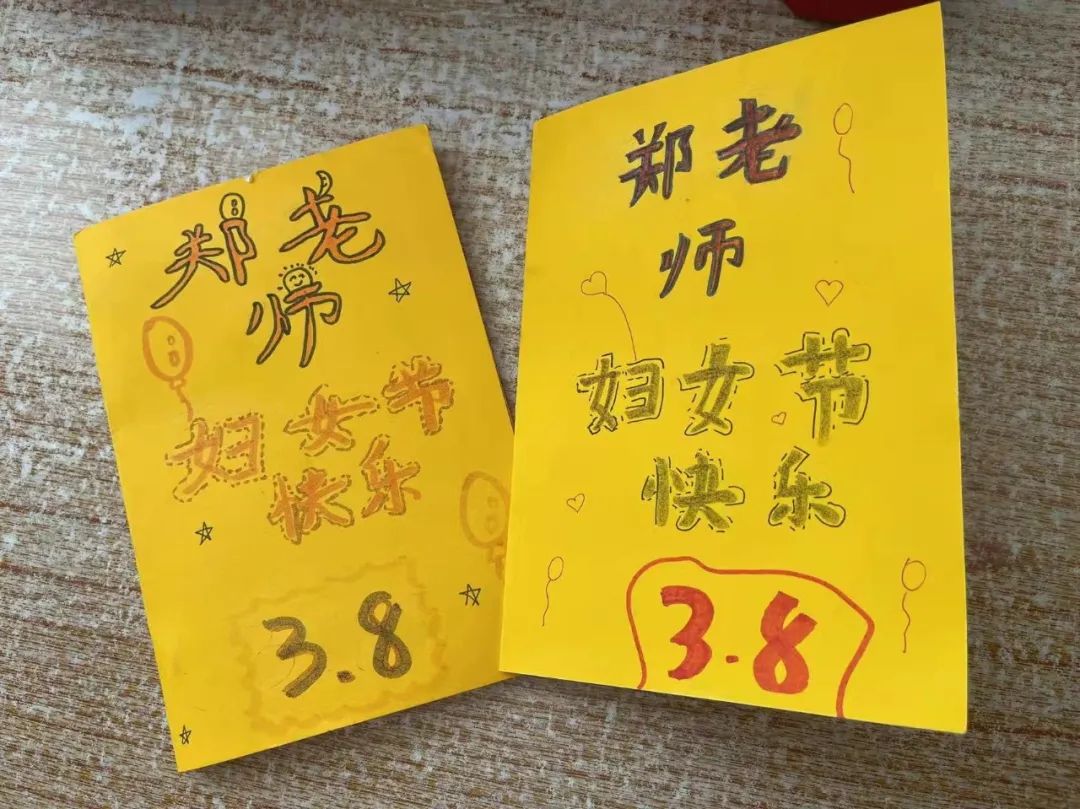 郑老
师
妇女节
快乐
3.8
郑老
师
妇女节
快乐
3.8